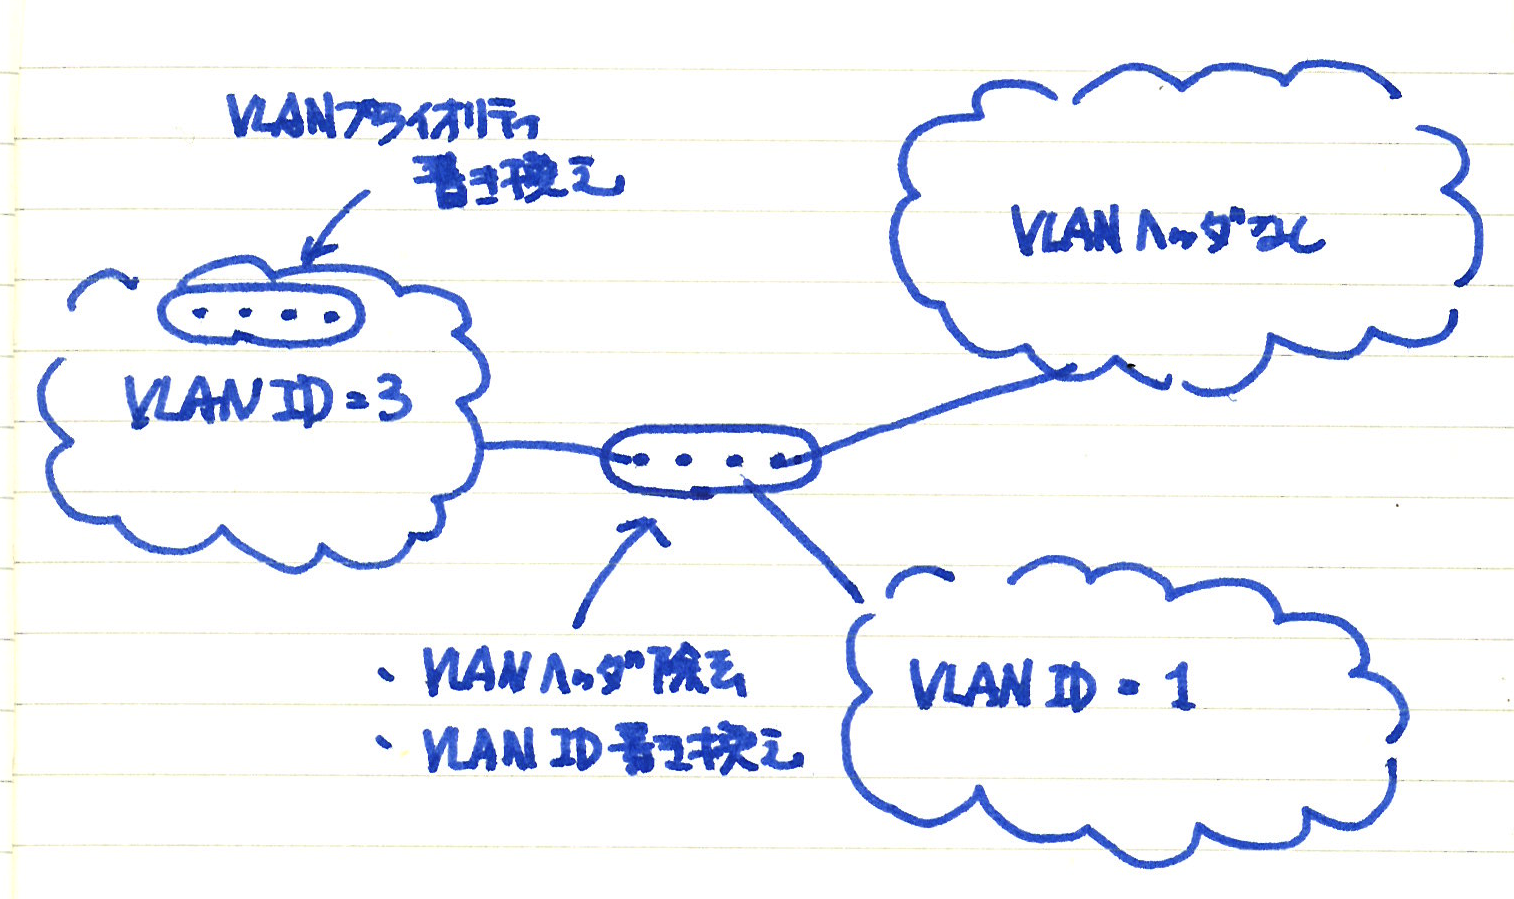 VLANプライオリティ
書き換え
VLANヘッダなし
VLAN ID=3
・VLANヘッダ除去
・VLAN ID書き換え
VLAN ID=1